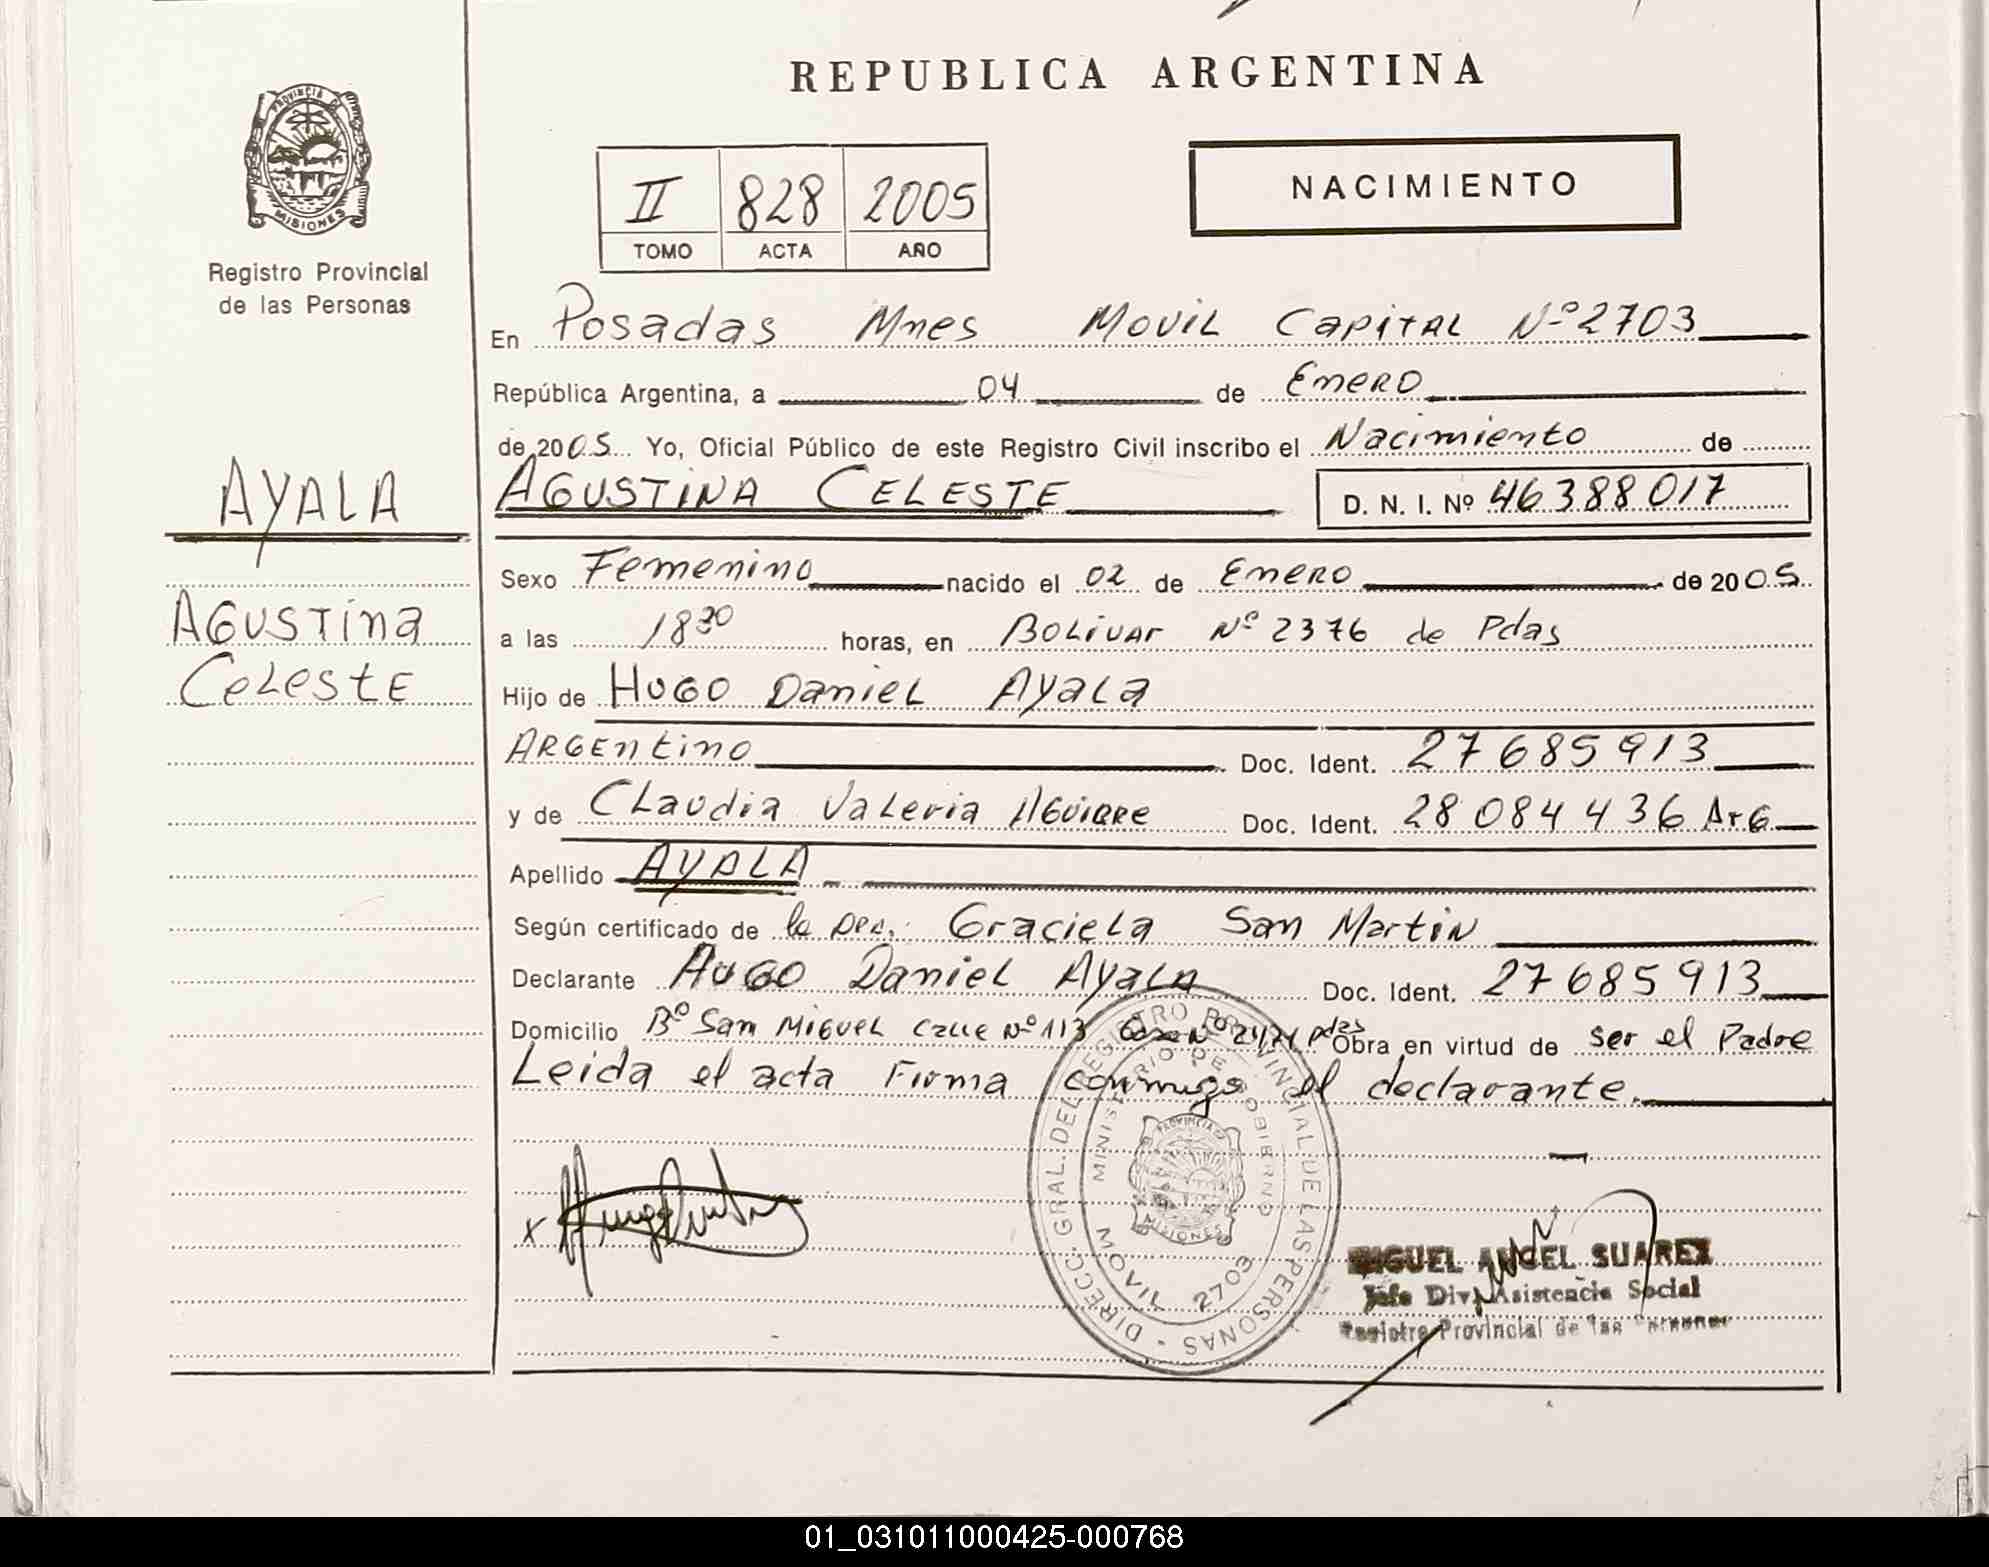 REPUBLICA ARGENTINA
PROVINCIA DE
MISIONES
Registro Provincial
de las Personas
II 828 2005
TOMO ACTA AÑO
NACIMIENTO
En Posadas Mnes Movil Capital Nº 2703
República Argentina, a 04 de Enero
de 2005 Yo, Oficial Público de este Registro Civil inscribo el Nacimiento de
AGUSTINA CELESTE D. N. I. Nº 46388017
AYALA
Agustina
Celeste
Sexo Femenino nacido el 02 de Enero de 2005
a las 18 30 horas, en Bolivar Nº 2376 de Pdas
Hijo de Hugo Daniel Ayala
Argentino Doc. Ident. 27685913
y de Claudia Valeria Aguirre Doc. Ident. 28084436 Arg
Apellido AYALA
Según certificado de la Dra. Graciela San Martin
Declarante Hugo Daniel Ayala Doc. Ident. 27685913
Domicilio Bº San Miguel Calle Nº 113 Casa Nº Pdas Obra en virtud de ser el Padre
Leida el acta Firma conmigo el declarante.
x
DIRECC. GRAL. DEL REGISTRO PROVINCIAL DE LAS PERSONAS -
MINISTERIO DE GOBIERNO
PROVINCIA DE
MISIONES
MOVIL 2703
MIGUEL ANGEL SUAREZ
Jefe Div. Asistencia Social
Registro Provincial de las Personas
01_031011000425-000768